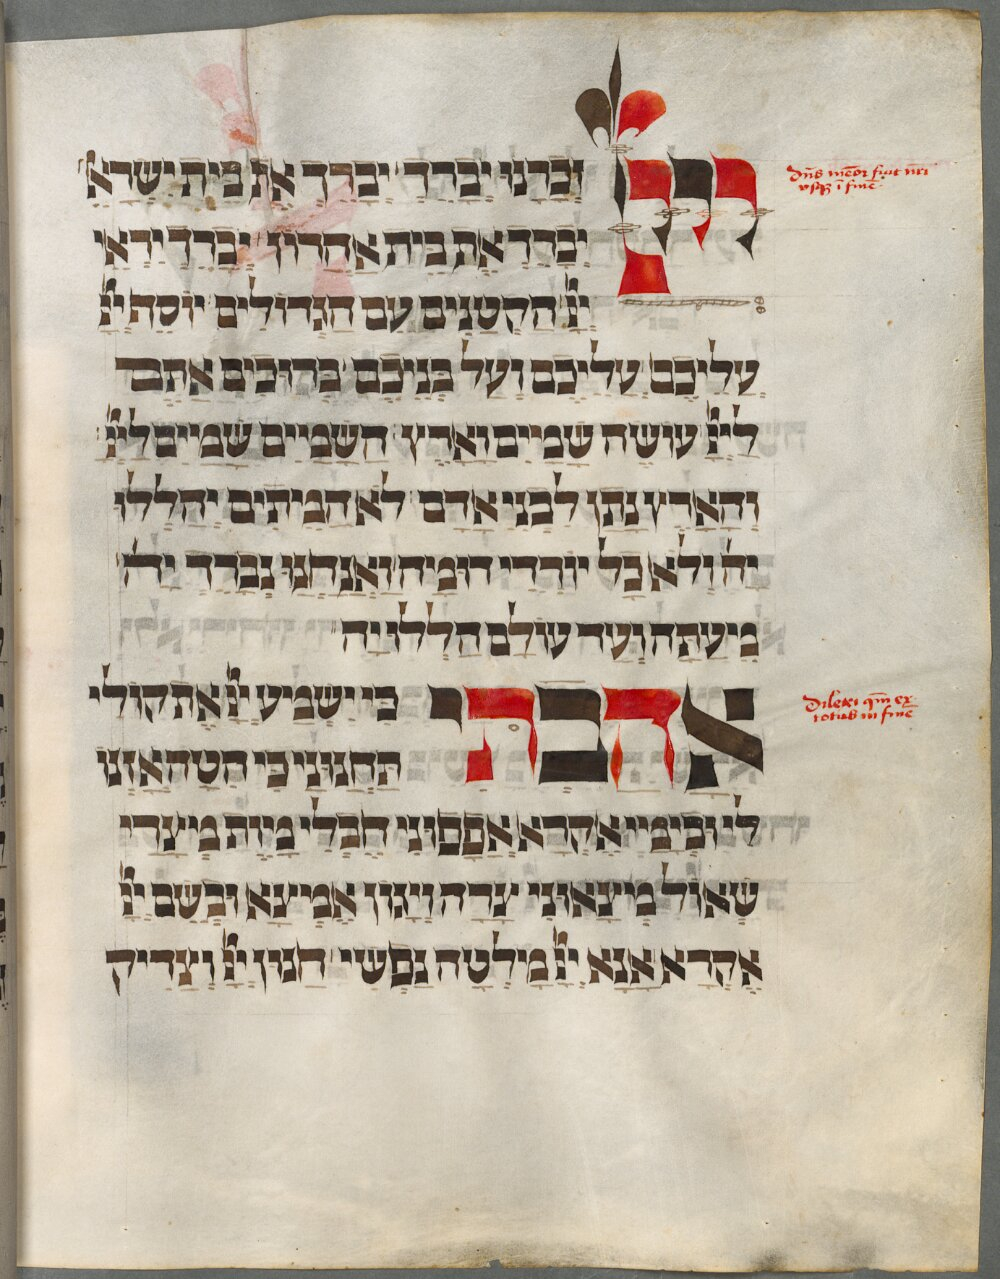 ייי זכרנו יברך יברך את בית ישרא
יברך את בית אהרון יברך יראי
ייי הקטנים עם הגדולים יוסף ייי
עליכם עליכם ועל בניכם ברוכים אתם
לייי עושה שמים וארץ השמים שמים לייי
והארץ נתן לבני אדם לא המיתים יהללו
יה ולא כל יורדי דומיה ואנחנו נברך יה
מיעתה ועד עולם הללויה
אהבתי כי ישמיע ייי את קולי
תחנוניי כי הטה אזנו
לי ובימיי אקרא אפפוני חבלי מות מיצרי
שאול מיצאוני צרה ויגון אמיצא ובשם ייי
אקרא אנא ייי מילטה נפשי חנון ייי וצדיק
dñs memor fuit nri
usq3 ī fine
Dilexi qm̄ ex
in fine